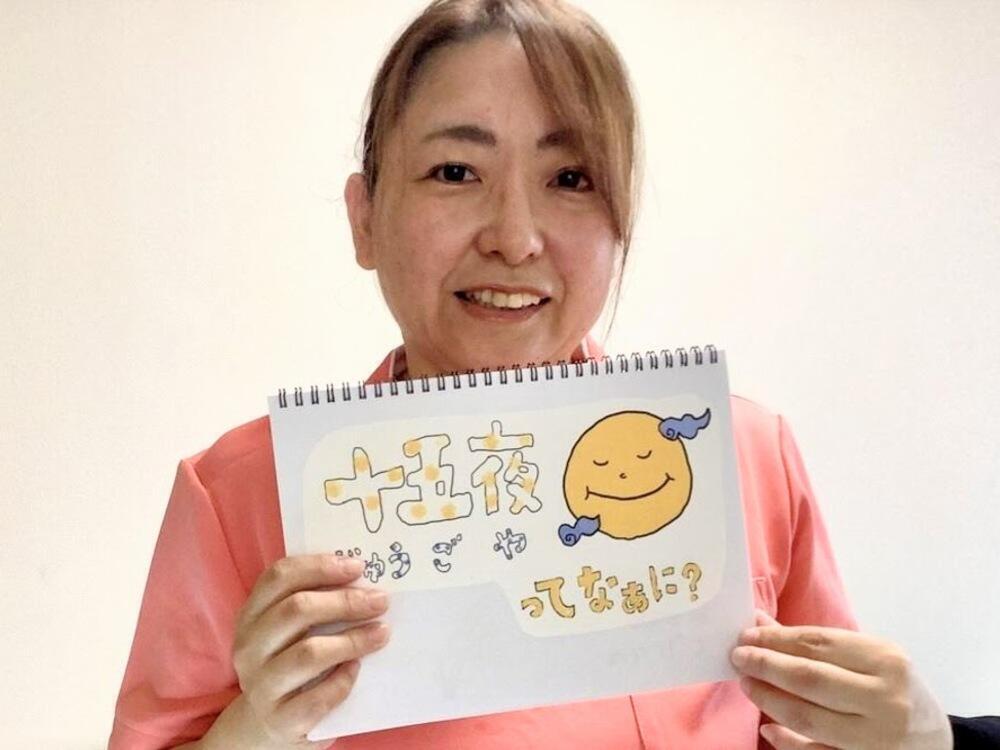 十五夜
じゅうごや
ってなぁに?